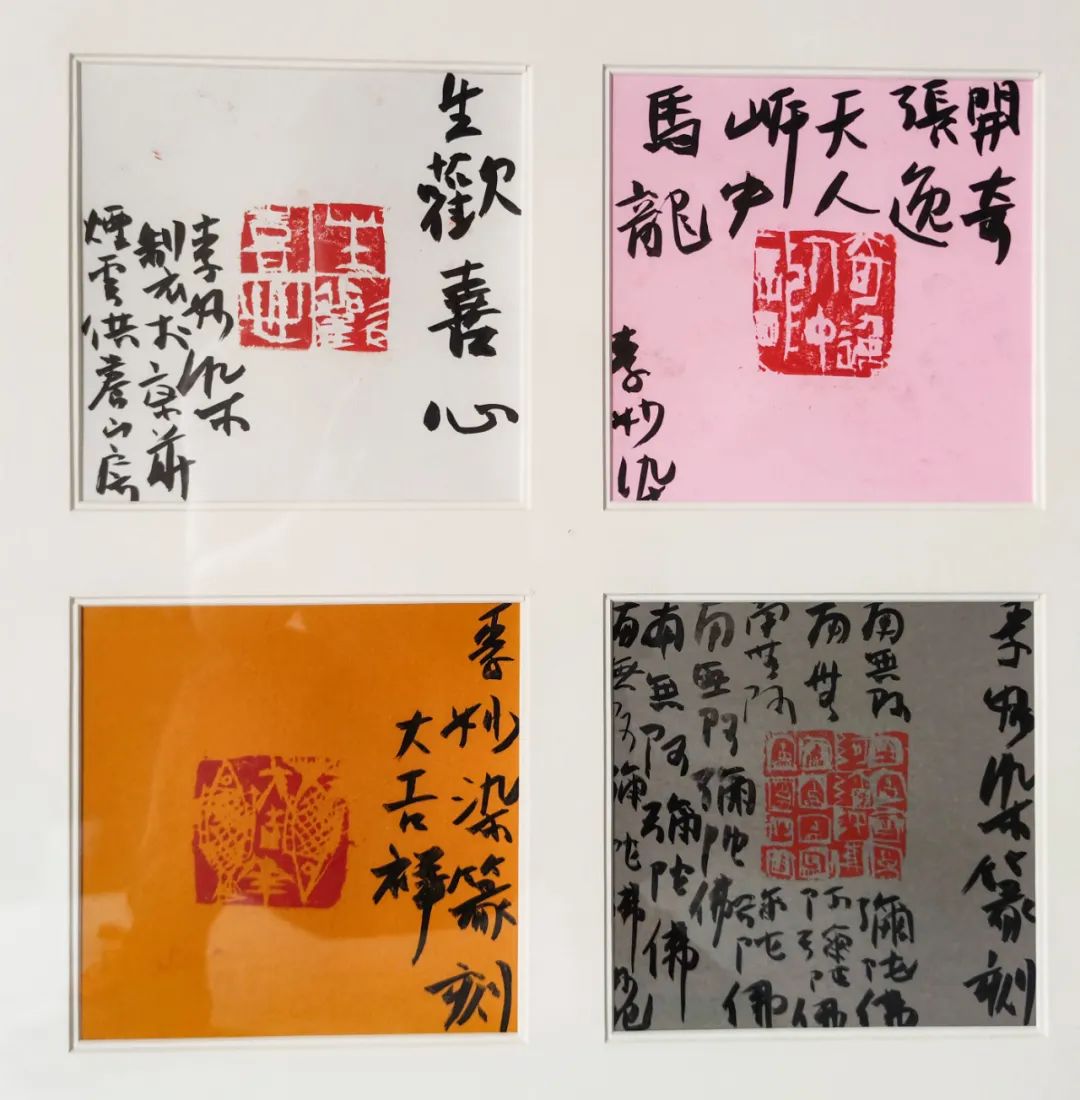 生歡喜心
李妙染
制於大京華
煙雲供養山房
開奇
張逸
天人
岍中
馬龍
李妙染
李妙染篆刻
大吉祥
李妙染篆刻
南無阿彌陀佛
南無阿彌陀佛
南無阿彌陀佛
南無阿彌陀佛
南無阿彌陀佛
南無阿彌陀佛